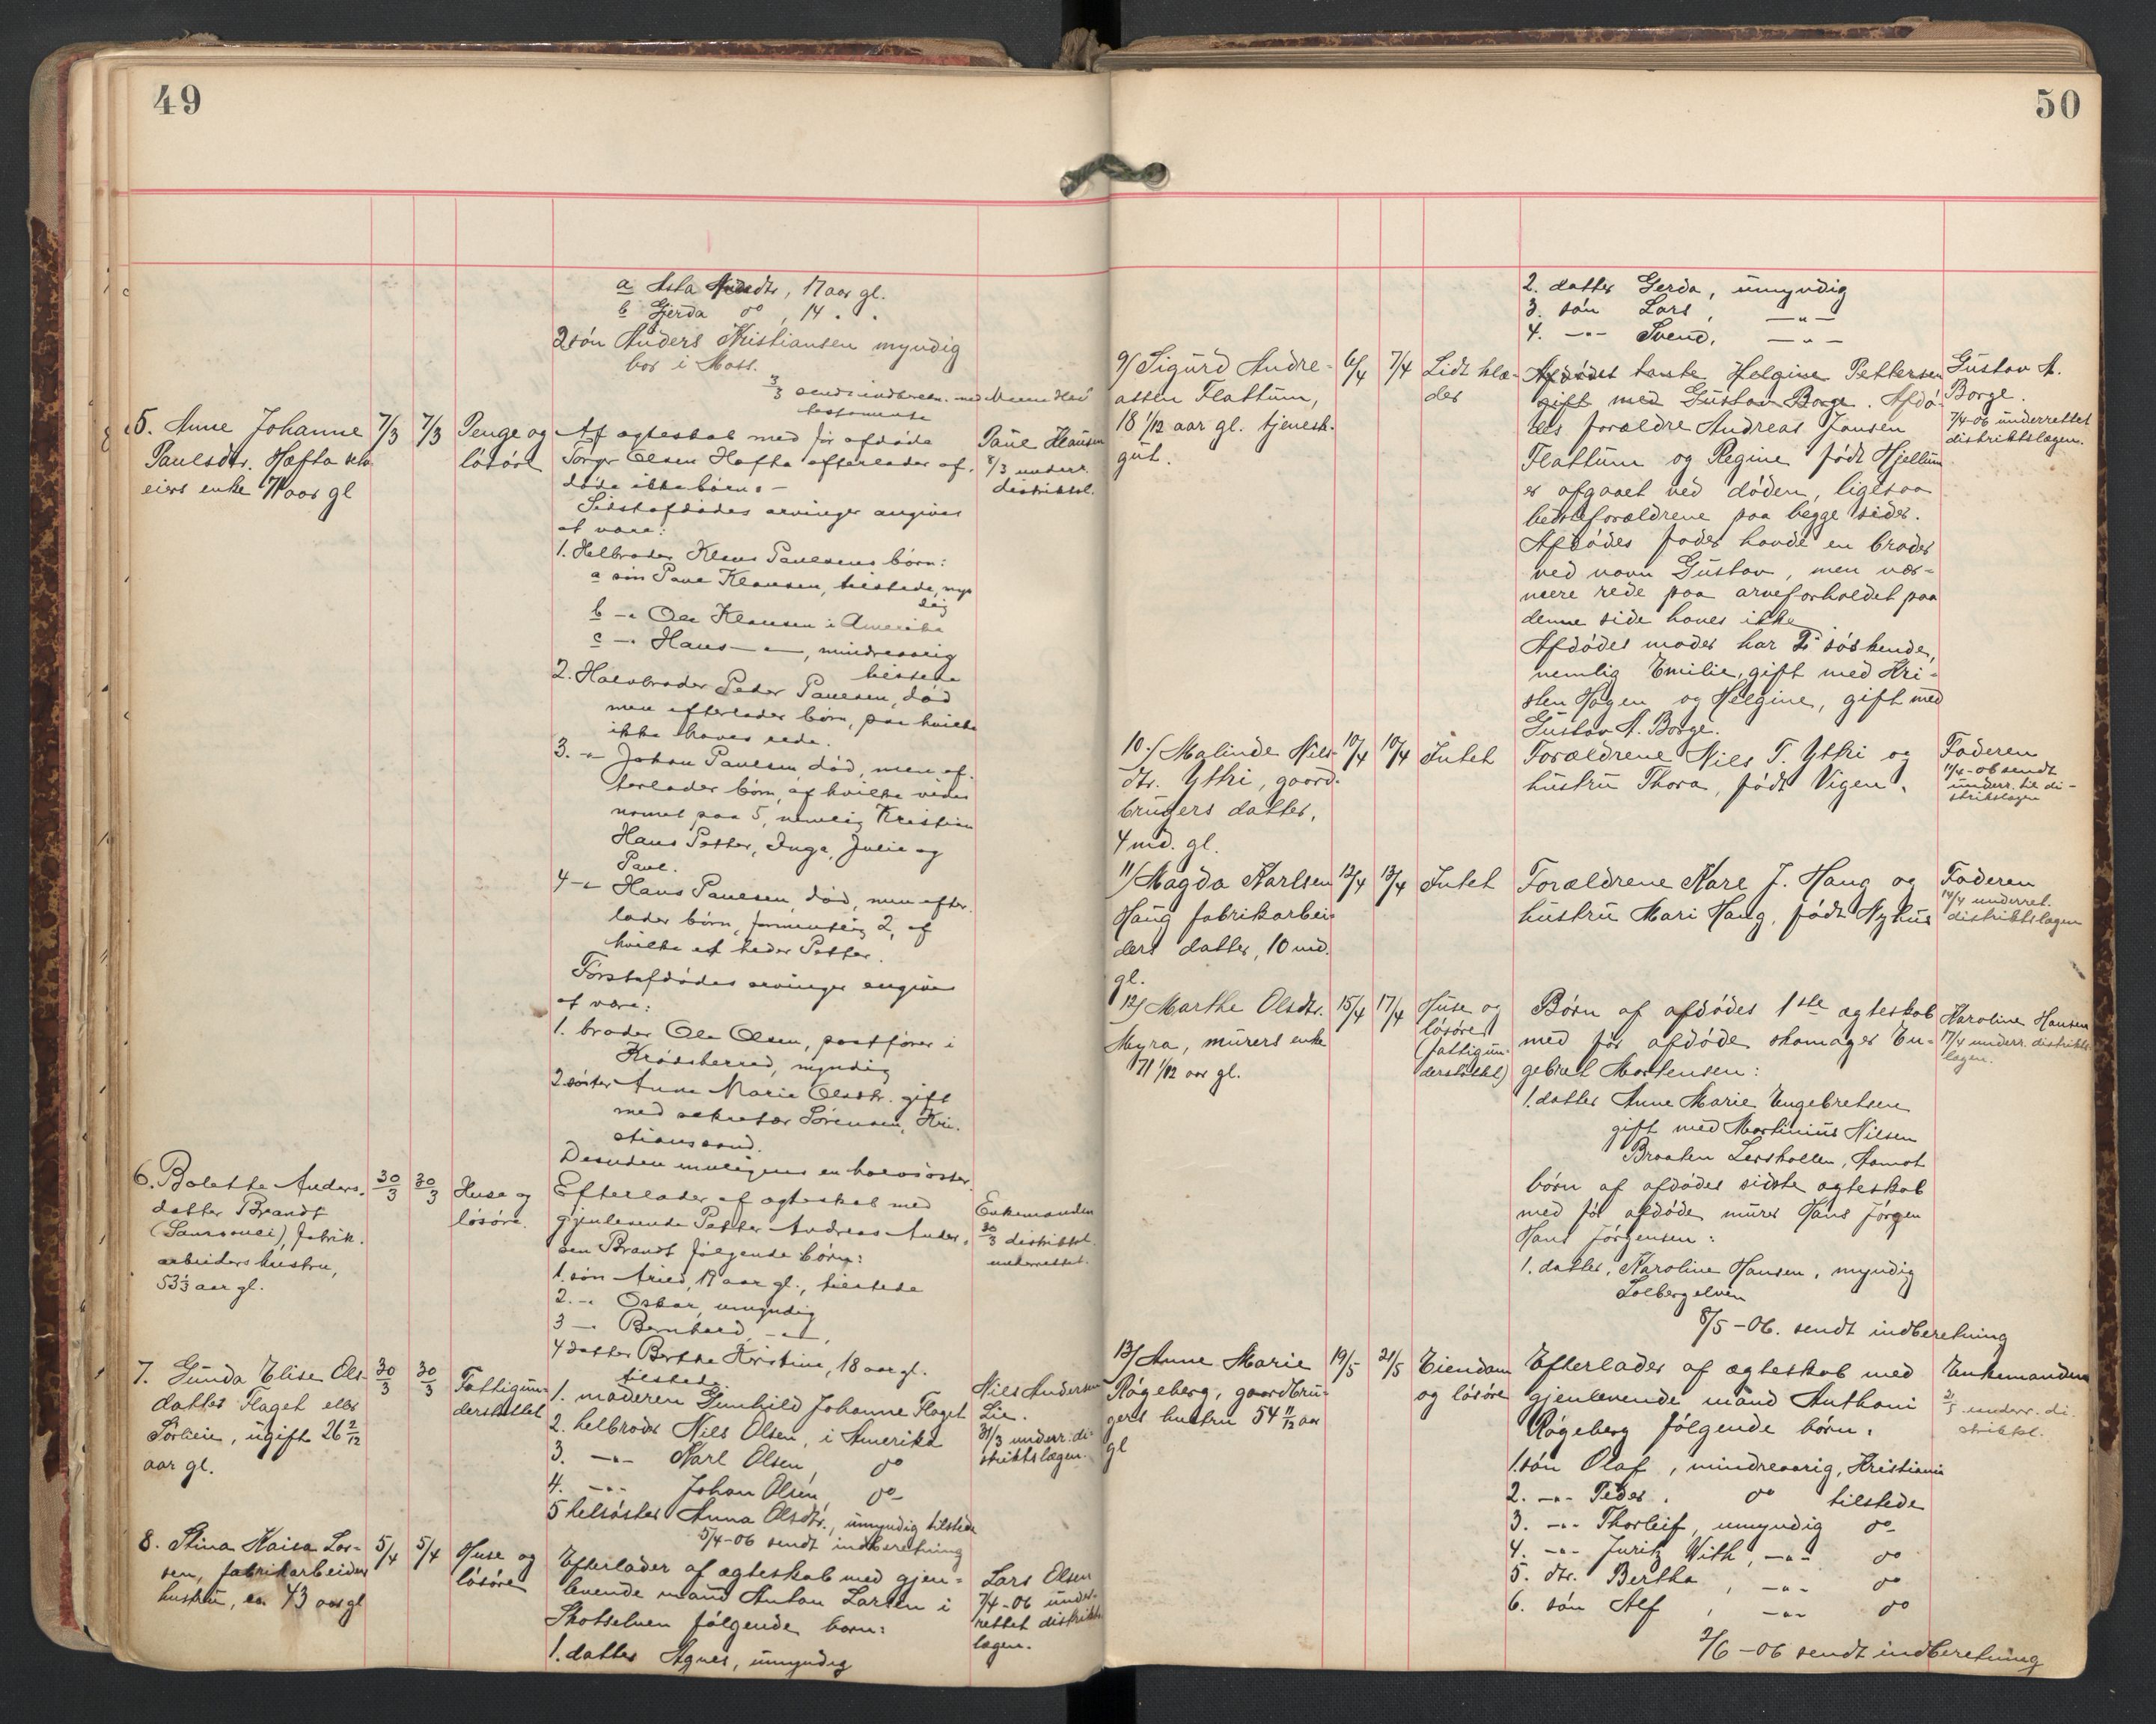 49
a Asta Andsdtr, 17 aar gl.
b Gjerda do, 14 . .
2 søn Anders Kristiansen myndig
bor i Moss.
3/3 sendt indberetn. med
testamente
5. Anne Johanne
Paulsdtr. Hæfta selv
eiers enke 71 aar gl
7/3
7/3
Penge og
løsøre
Af ægteskab med før afdøde
Torger Olsen Hafta efterlader af-
døde ikke børn. -
Sidstafdødes arvinger angives
at være:
1. Helbroder Klaus Paulsens børn:
a søn Paul Klausen, tilstede, myn
dig
b -"- Ole Klausen i Amerika
c -"- Hans -"-, mindreaarig
tilstede
2. Halvbroder Peder Paulsen, død
men efterlader børn, paa hvilke
ikke haves rede.
3. -"- Johan Paulsen død, men ef-
terlader børn, af hvilke vides
navnet paa 5, nemlig Kristian
Hans Petter, Inga, Julie og
Paul.
4 -"- Hans Paulsen, død, men efter-
lader børn, formentlig 2, af
hvilke et heder Petter.
Førstafdødes arvinger angives
at være:
1. broder Ole Olsen, postfører i
Krødsherred, myndig
2 søster Anne Marie Olsdtr. gift
med sekretær Sørensen, Kri-
stianssand.
Desuden muligens en halvsøster.
Paul Klausen
8/3 underr.
distriktsl.
6. Bolette Anders-
datter Brandt
(Sanssouci), fabrik-
arbeiders hustru,
53 1/3 aar gl.
30/3
30/3
Huse og
løsøre.
Efterlader af ægteskab med
gjenlevende Petter Andreas Ander-
sen Brandt følgende børn:
1. søn Aried, 19 aar gl., tilstede
2. -"- Oskar, umyndig
3 -"- Bernhard, -"-,
4 datter Berthe Kristine, 18 aar gl.
tilstede
Enkemanden
30/3 distriktsl.
underrettet.
7. Gunda Elise Ols-
datter Flaget eller
Sørlien, ugift 26 2/12
aar gl.
30/3
30/3
Fattigun-
derstøttet
1. moderen Gunhild Johanne Flaget
2. helbroder Nils Olsen, i Amerika
3. -"- Karl Olsen, do
4. -"- Johan Olsen, do-
5 helsøster Anna Olsdtr., umyndig tilstede
5/4-06 sendt indberetning
Nils Andersen
Lie.
31/3 underr. di-
striktslægen.
8. Stina Kaisa Lar-
sen, fabrikarbeiders
hustru, ca. 43 aar gl
5/4
5/4
Huse og
løsøre
Efterlader af ægteskab med gjen-
levende mand Anton Larsen i
Skotselven følgende børn:
1. datter Agnes, umyndig
Lars Olsen
7/4-06 under-
rettet distrikts
lægen.
50
2. datter Gerda, umyndig
3. søn Lars, -"-
4. -"- Svend, -"-
9/ Sigurd Andre-
assen Flattum,
18 1/12 aar gl. tjeneste-
gut.
6/4
7/4
Lidt klæ-
der
Afdødes tante Helgine Pettersen
gift med Gustav Borge. Afdø-
des forældre Andreas Jansen
Flattum og Regine født Hjellum
er afgaaet ved døden, ligesaa
bedsteforældrene paa begge sider.
Afdødes fader havde en broder
ved navn Gustav, men nær-
mere rede paa arveforholdet paa
denne side haves ikke
Afdødes moder har 2 søskende,
nemlig Emilie, gift med Kri-
sten Hagen og Helgine, gift med
Gustav A. Borge.
Gustav A.
Borge.
7/4-06 underrettet
distriktslægen.
10./ Malinde Nils-
dtr. Yttri, gaard-
brugers datter,
4 md. gl.
10/4
10/4
Intet
Forældrene Nils T. Yttri og
hustru Thora, født Vigen.
Faderen
11/4-06 sendt
underr. til di-
striktslægen
11/ Magda Karlsen
Haug fabrikarbei-
ders datter, 10 md.
gl.
12/4
13/4
Intet
Forældrene Karl J. Haug og
hustru Mari Haug, født Nyhus
Faderen
14/4 underret.
distriktslægen
12/ Marthe Olsdtr.
Myra, murers enke
71 1/12 aar gl.
15/4
17/4
Huse og
løsøre
(fattigun-
derstøttet)
Børn af afdødes 1ste ægteskab
med før afdøde skomager En-
gebret Mortensen:
1. datter Anne Marie Engebretsen
gift med Martinius Nilsen
Braaten Lerskallen, Aamot
børn af afdødes sidste ægteskab
med før afdøde murer Hans Jørgen
Hans Jørgensen:
1. datter, Karoline Hansen, myndig
Solbergelven
8/5-06. sendt indberetning
Karoline Hansen
17/4 underr. distrikts
lægen.
13/ Anne Marie
Røgeberg, gaardbru-
gers hustru 54 11/12 aar
gl
19/5
21/5
Eiendom
og løsøre
Efterlader af ægteskab med
gjenlevende mand Anthoni
Røgeberg følgende børn.
1. søn Olaf, mindreaarig, Kristiania
2. -"- Peder, do tilstede
3. -"- Thorleif, umyndig do
4. -"- Juritz With, -"- do
5. dtr. Bertha, -"- do
6. søn Alf, -"- do
2/6-06 sendt indberetning
Enkemanden
21/5 underr. di-
striktsl.